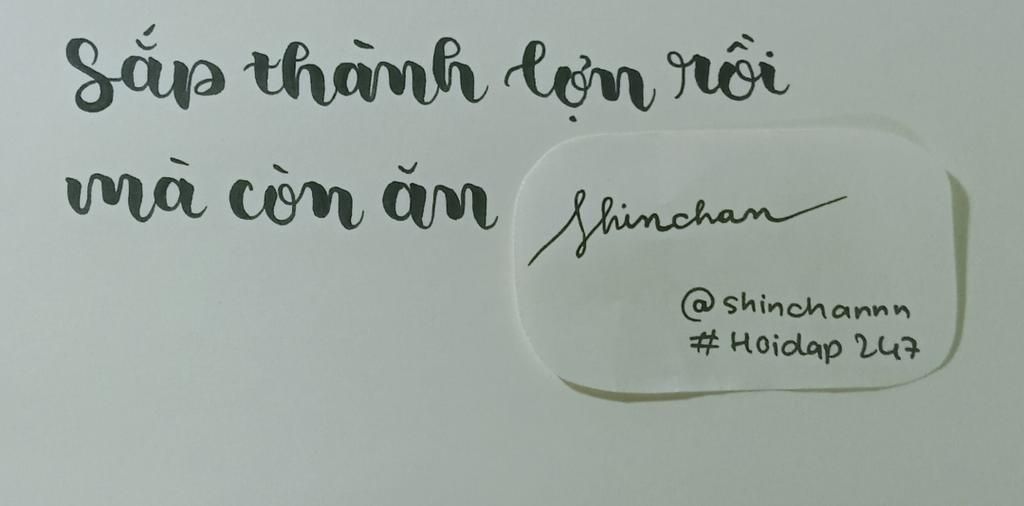 Sắp thành lợn rồi
mà còn ăn
Shinchan
@shinchannn
# Hoidap 247